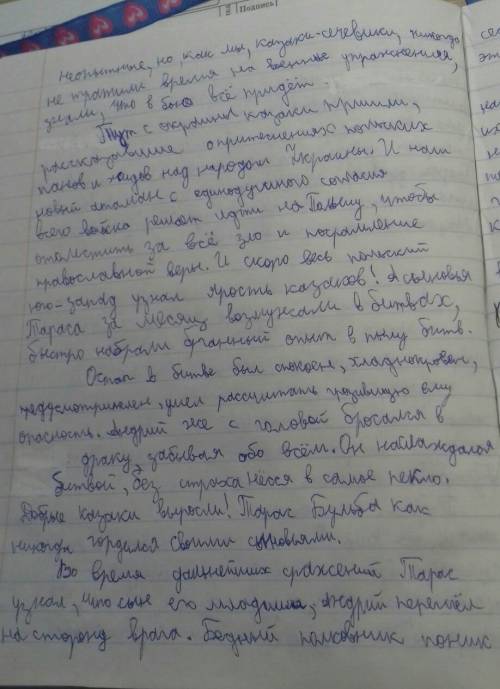 Подпись
неопытные, но, как мы, казаки-сечевики, никогда
не тратили время на военные упражнения,
знали, что в бою всё придёт.
Тут с окраины казаки пришли,
рассказавшие о притеснениях польских
панов и жидов над народом Украины. И наш
новый атаман с единодушного согласия
всего войска решает идти на Польшу, чтобы
отомстить за всё зло и посрамление
православной веры. И скоро весь польский
юго-запад узнал ярость казаков! А сыновья
Тараса за месяц возмужали в битвах,
быстро набрали бранный опыт в пылу битв.
Остап в битве был спокоен, хладнокровен,
предусмотрителен, умел рассчитать грозившую ему
опасность. Андрий же с головой бросался в
драку, забывая обо всём. Он наслаждался
битвой, без страха нёсся в самое пекло.
Добрые казаки выросли! Тарас Бульба как
никогда гордился своими сыновьями.
Во время дальнейших сражений Тарас
узнал, что сын его младший, Андрий перешёл
на сторону врага. Бедный полковник поник